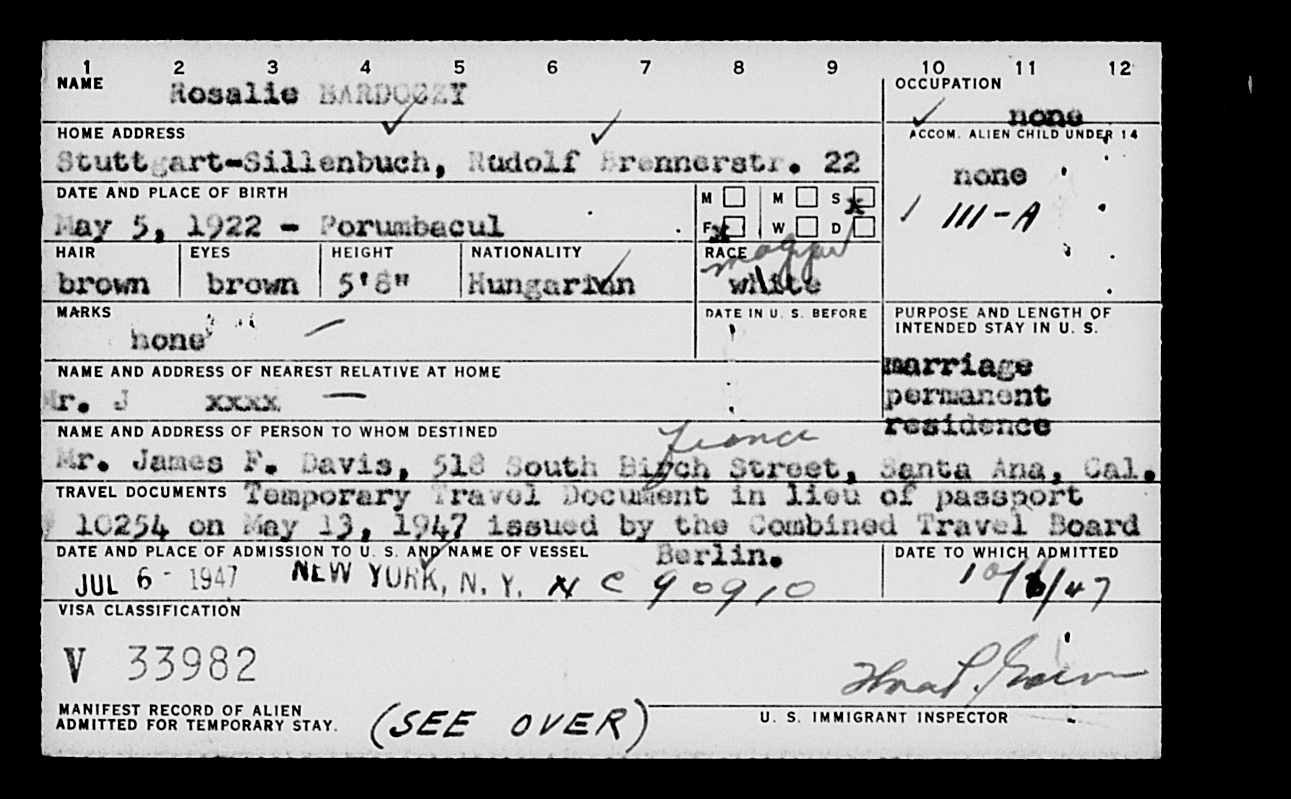 1 2 3 4 5 6 7 8 9 10 11 12
NAME
Rosalie BARDOCZY
OCCUPATION
none
HOME ADDRESS
Stuttgart-Sillenbuch, Rudolf Brennerstr. 22
ACCOM. ALIEN CHILD UNDER 14
none
1 III-A
DATE AND PLACE OF BIRTH
May 5, 1922 - Porumbacul
M M S x
F x W D
HAIR EYES HEIGHT NATIONALITY RACE
magyar
brown brown 5'8" Hungarian white
MARKS
none
DATE IN U. S. BEFORE
PURPOSE AND LENGTH OF
INTENDED STAY IN U. S.
marriage
permanent
residence
NAME AND ADDRESS OF NEAREST RELATIVE AT HOME
Mr. J xxxx
NAME AND ADDRESS OF PERSON TO WHOM DESTINED
fiance
Mr. James F. Davis, 518 South Birch Street, Santa Ana, Cal.
TRAVEL DOCUMENTS Temporary Travel Document in lieu of passport
10254 on May 13, 1947 issued by the Combined Travel Board
Berlin.
DATE AND PLACE OF ADMISSION TO U. S. AND NAME OF VESSEL
JUL 6 - 1947 NEW YORK, N. Y. N C 90910
DATE TO WHICH ADMITTED
10/6/47
VISA CLASSIFICATION
V 33982
MANIFEST RECORD OF ALIEN
ADMITTED FOR TEMPORARY STAY.
(SEE OVER)
U. S. IMMIGRANT INSPECTOR